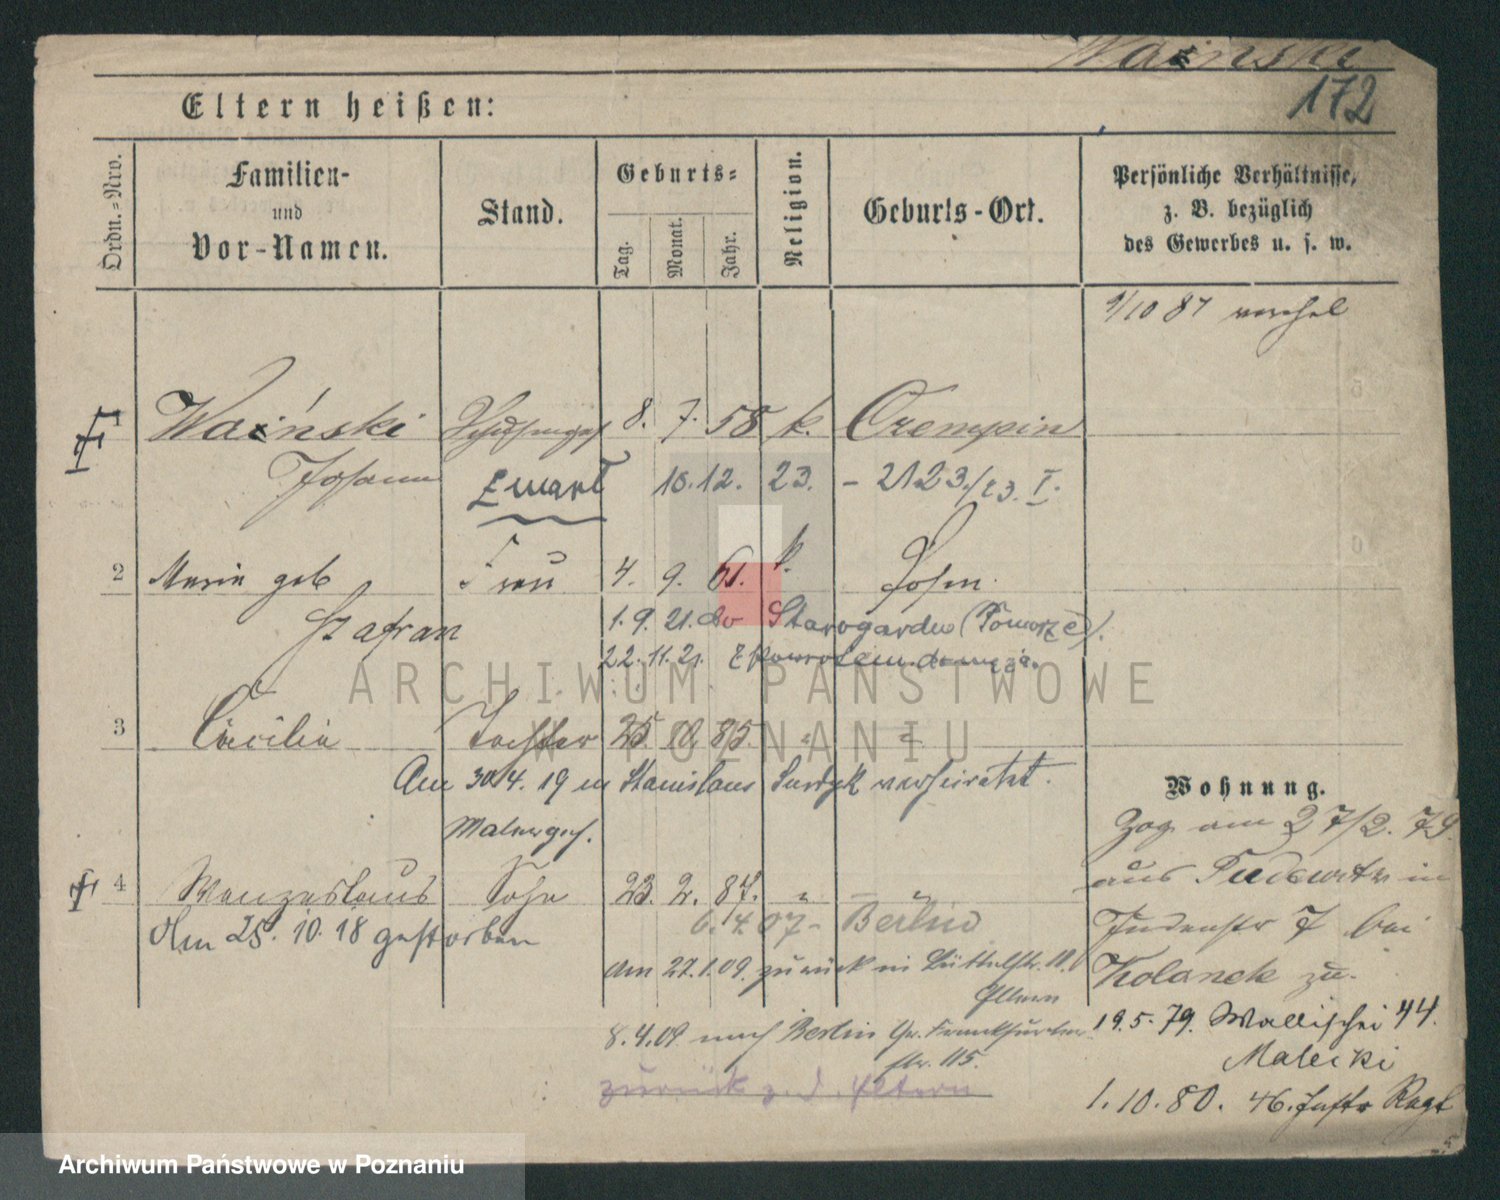 Waźnski
172
Eltern heißen:
Ordn.-Nro.
Familien-
und
Vor-Namen.
Stand.
Geburts-
Tag.
Monat.
Jahr.
Religion.
Geburts-Ort.
Persönliche Verhältnisse,
z. B. bezüglich
des Gewerbes u. s. w.
1/10 87
1 Waźński 8. 7. 58 k. Crempin
Johann Zmarł 10.12. 23. – 2123./23. I.
2 Marie geb Frau 4. 9. 61. k. Posen
Szafran 1. 9. 21. do Starogardu (Pomorze).
22. 11. 21. z powrotem do męża.
3 Cäcilia Tochter 25. 10. 85. " "
Am 30.4. 19 m Stanislaus verheiratet.
Malerges.
4 Wenzeslaus Sohn 23. 2. 87. "
Am 25. 10. 18 gestorben
6. 4. 07 - Berlin
Am 27.1.09. zurück in Büttelstr. 11.
Eltern
8.4.09 nach Berlin Gr. Frankfurter
str. 115.
zurück z. d. Eltern
Wohnung.
Zog am 27/2. 79.
aus Pudewitz in
Judenstr 7 bei
Kolanek zu.
19.5.79. Wallischei 44.
Malecki
1.10.80. 46. Inftr Regt
ARCHIWUM PAŃSTWOWE
W POZNANIU
Archiwum Państwowe w Poznaniu